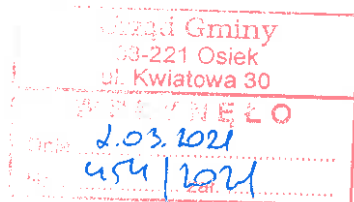 Urząd Gminy
83-221 Osiek
ul. Kwiatowa 30
WPŁYNĘŁO
Dnia 2.03.2021
Nr 454/2021 zał.